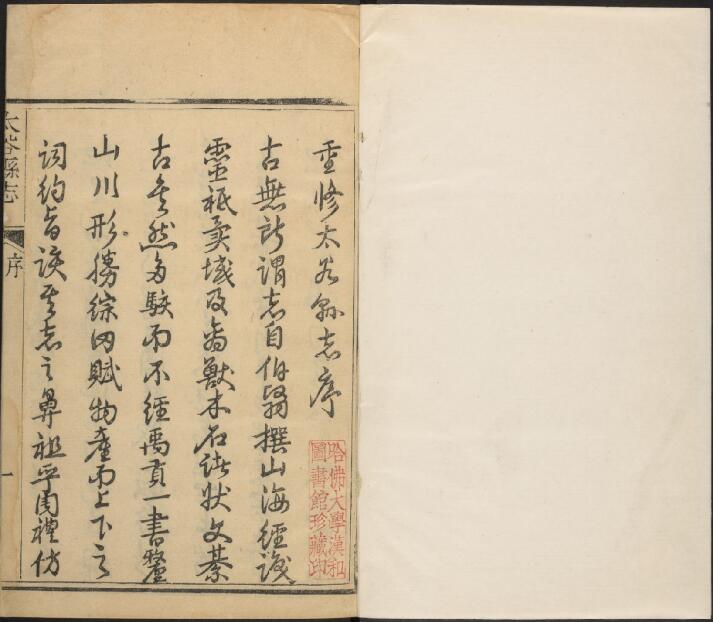 重修太谷縣志序
古無所謂志自伯翳撰山海經識
靈祇異域及禽獸木石諸狀文綦
古矣然多駭而不經禹貢一書釐
山川形勝綜田賦物產而上下之
詞約旨該其志之鼻祖乎周禮仿
太谷縣志
序
一
哈佛大學漢和
圖書館珍藏印